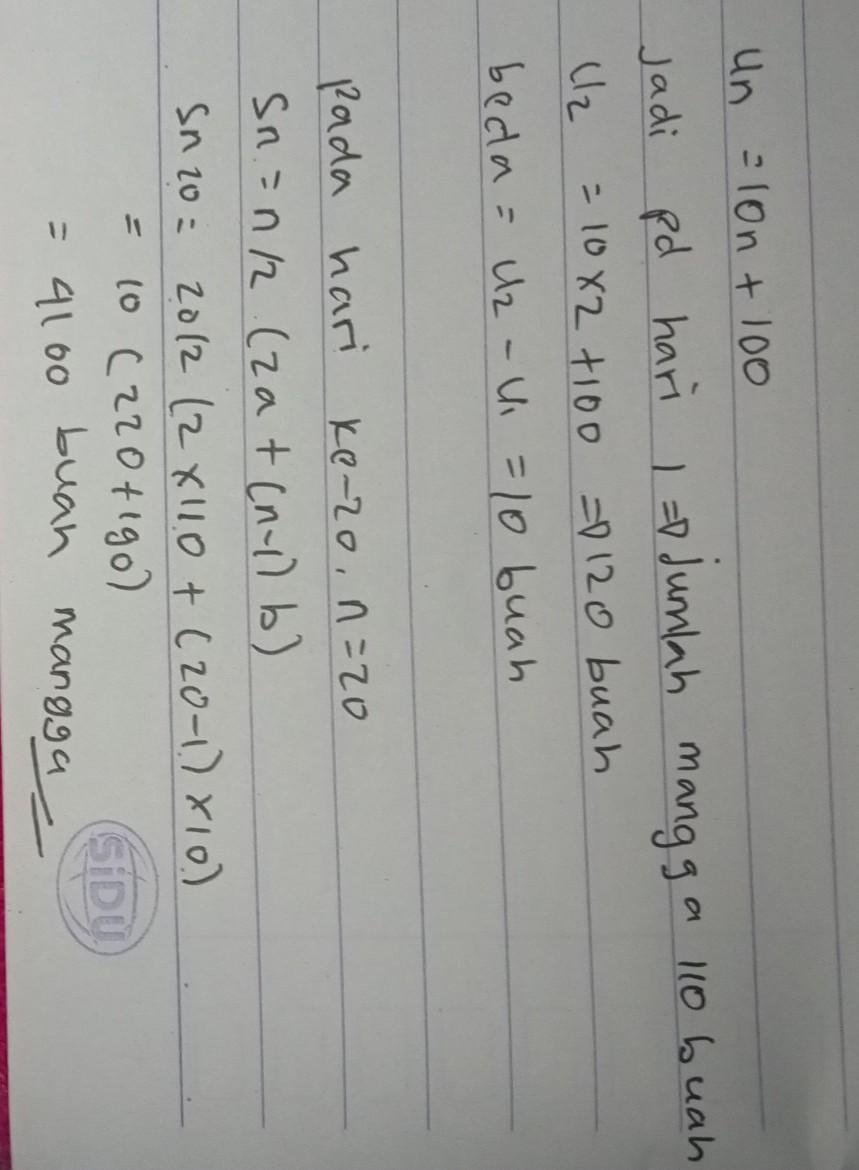 Un = 10n + 100
Jadi pd hari 1 => jumlah mangga 110 buah
U2 = 10 x 2 + 100 => 120 buah
beda = U2 - U1 = 10 buah
Pada hari ke-20, n = 20
Sn = n/2 (2a + (n-1) b)
Sn 20 = 20/2 (2 x 110 + (20-1) x 10)
= 10 (220 + 190)
= 4100 buah mangga
SiDU